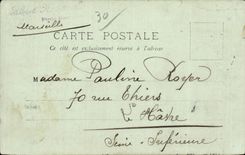 30/
Marseille
CARTE POSTALE
Ce côté est exclusivement réservé à l'adresse
Madame Pauline Royer
70 rue Thiers
Le Hâvre
Seine-Inférieure